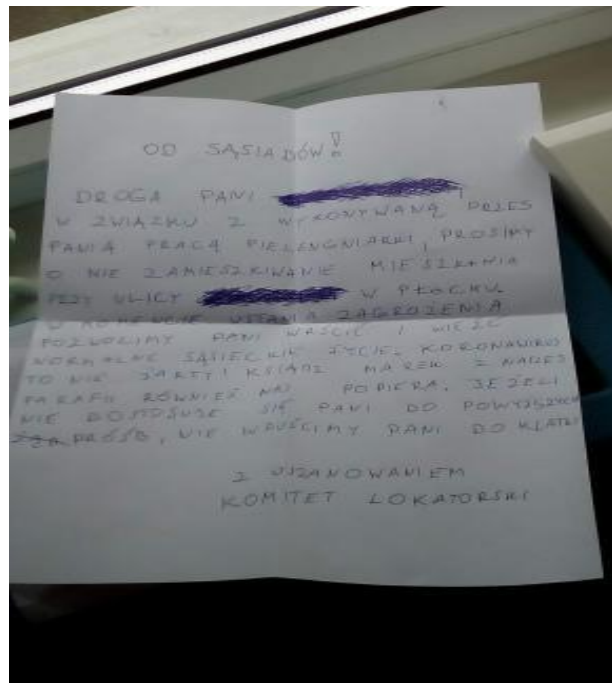 OD SĄSIADÓW!
DROGA PANI
W ZWIĄZKU Z WYKONYWANĄ PRZES
PANIĄ PRACĄ PIELENGNIARKI, PROSIMY
O NIE ZAMIESZKIWANIE MIESZKANIA
PRZY ULICY W PŁOCKU.
W MOMENCIE USTANIA ZAGROŻENIA
POZWOLIMY PANI WRÓCIĆ I WIEŹĆ
NORMALNE SĄSIECKIE ŻYCIE. KORONAWIRUS
TO NIE ŻARTY! KSIĄDZ MAREK Z NASZEJ
PARAFII RÓWNIEŻ NAS POPIERA. JEŻELI
NIE DOSTOSUJE SIĘ PANI DO POWYŻSZYCH
PRÓŚB, NIE WPUŚCIMY PANI DO KLATKI
Z USZANOWANIEM
KOMITET LOKATORSKI